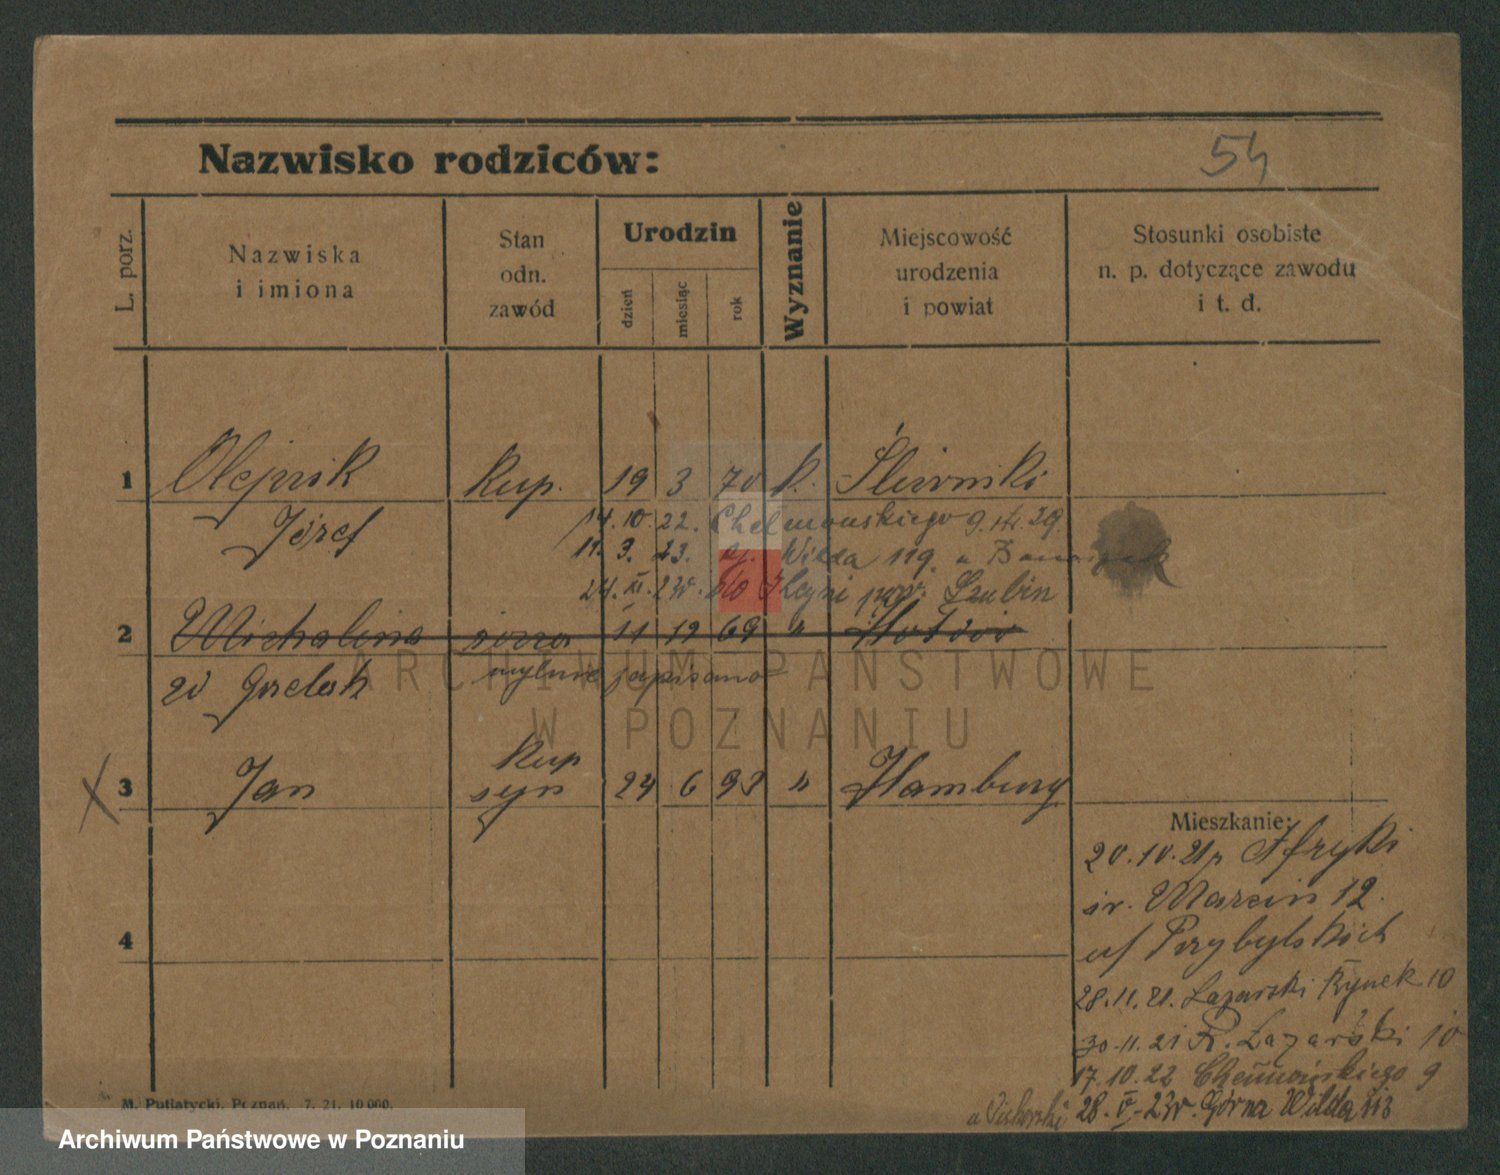 Nazwisko rodziców:
54
L. porz.
Nazwiska
i imiona
Stan
odn.
zawód
Urodzin
dzień
miesiąc
rok
Wyznanie
Miejscowość
urodzenia
i powiat
Stosunki osobiste
n. p. dotyczące zawodu
i t. d.
1 Olejnik Kup. 19 3 70 k. Śliwniki
Józef 14. 10. 22. Chełmońskiego 9.
11. 3. 23. Wilda 119.
24. XI. 23 pow. Szubin
2 Michalina żona 11 12 69 "
zd Grzelak mylnie zapisano
ARCHIWUM PAŃSTWOWE
W POZNANIU
3 Jan Kup
syn 24 6 93 " Hamburg
Mieszkanie:
20. 10. 21 z Afryki
św. Marcin 12.
u/ Przybylskich
4
28. 11. 21. Łazarski Rynek 10
30. 11. 21 R. Łazarski 10
17. 10. 22 Chełmońskiego 9
28. V. 23 Górna Wilda
M. Putiatycki, Poznań. 7. 21. 10 000.
Archiwum Państwowe w Poznaniu